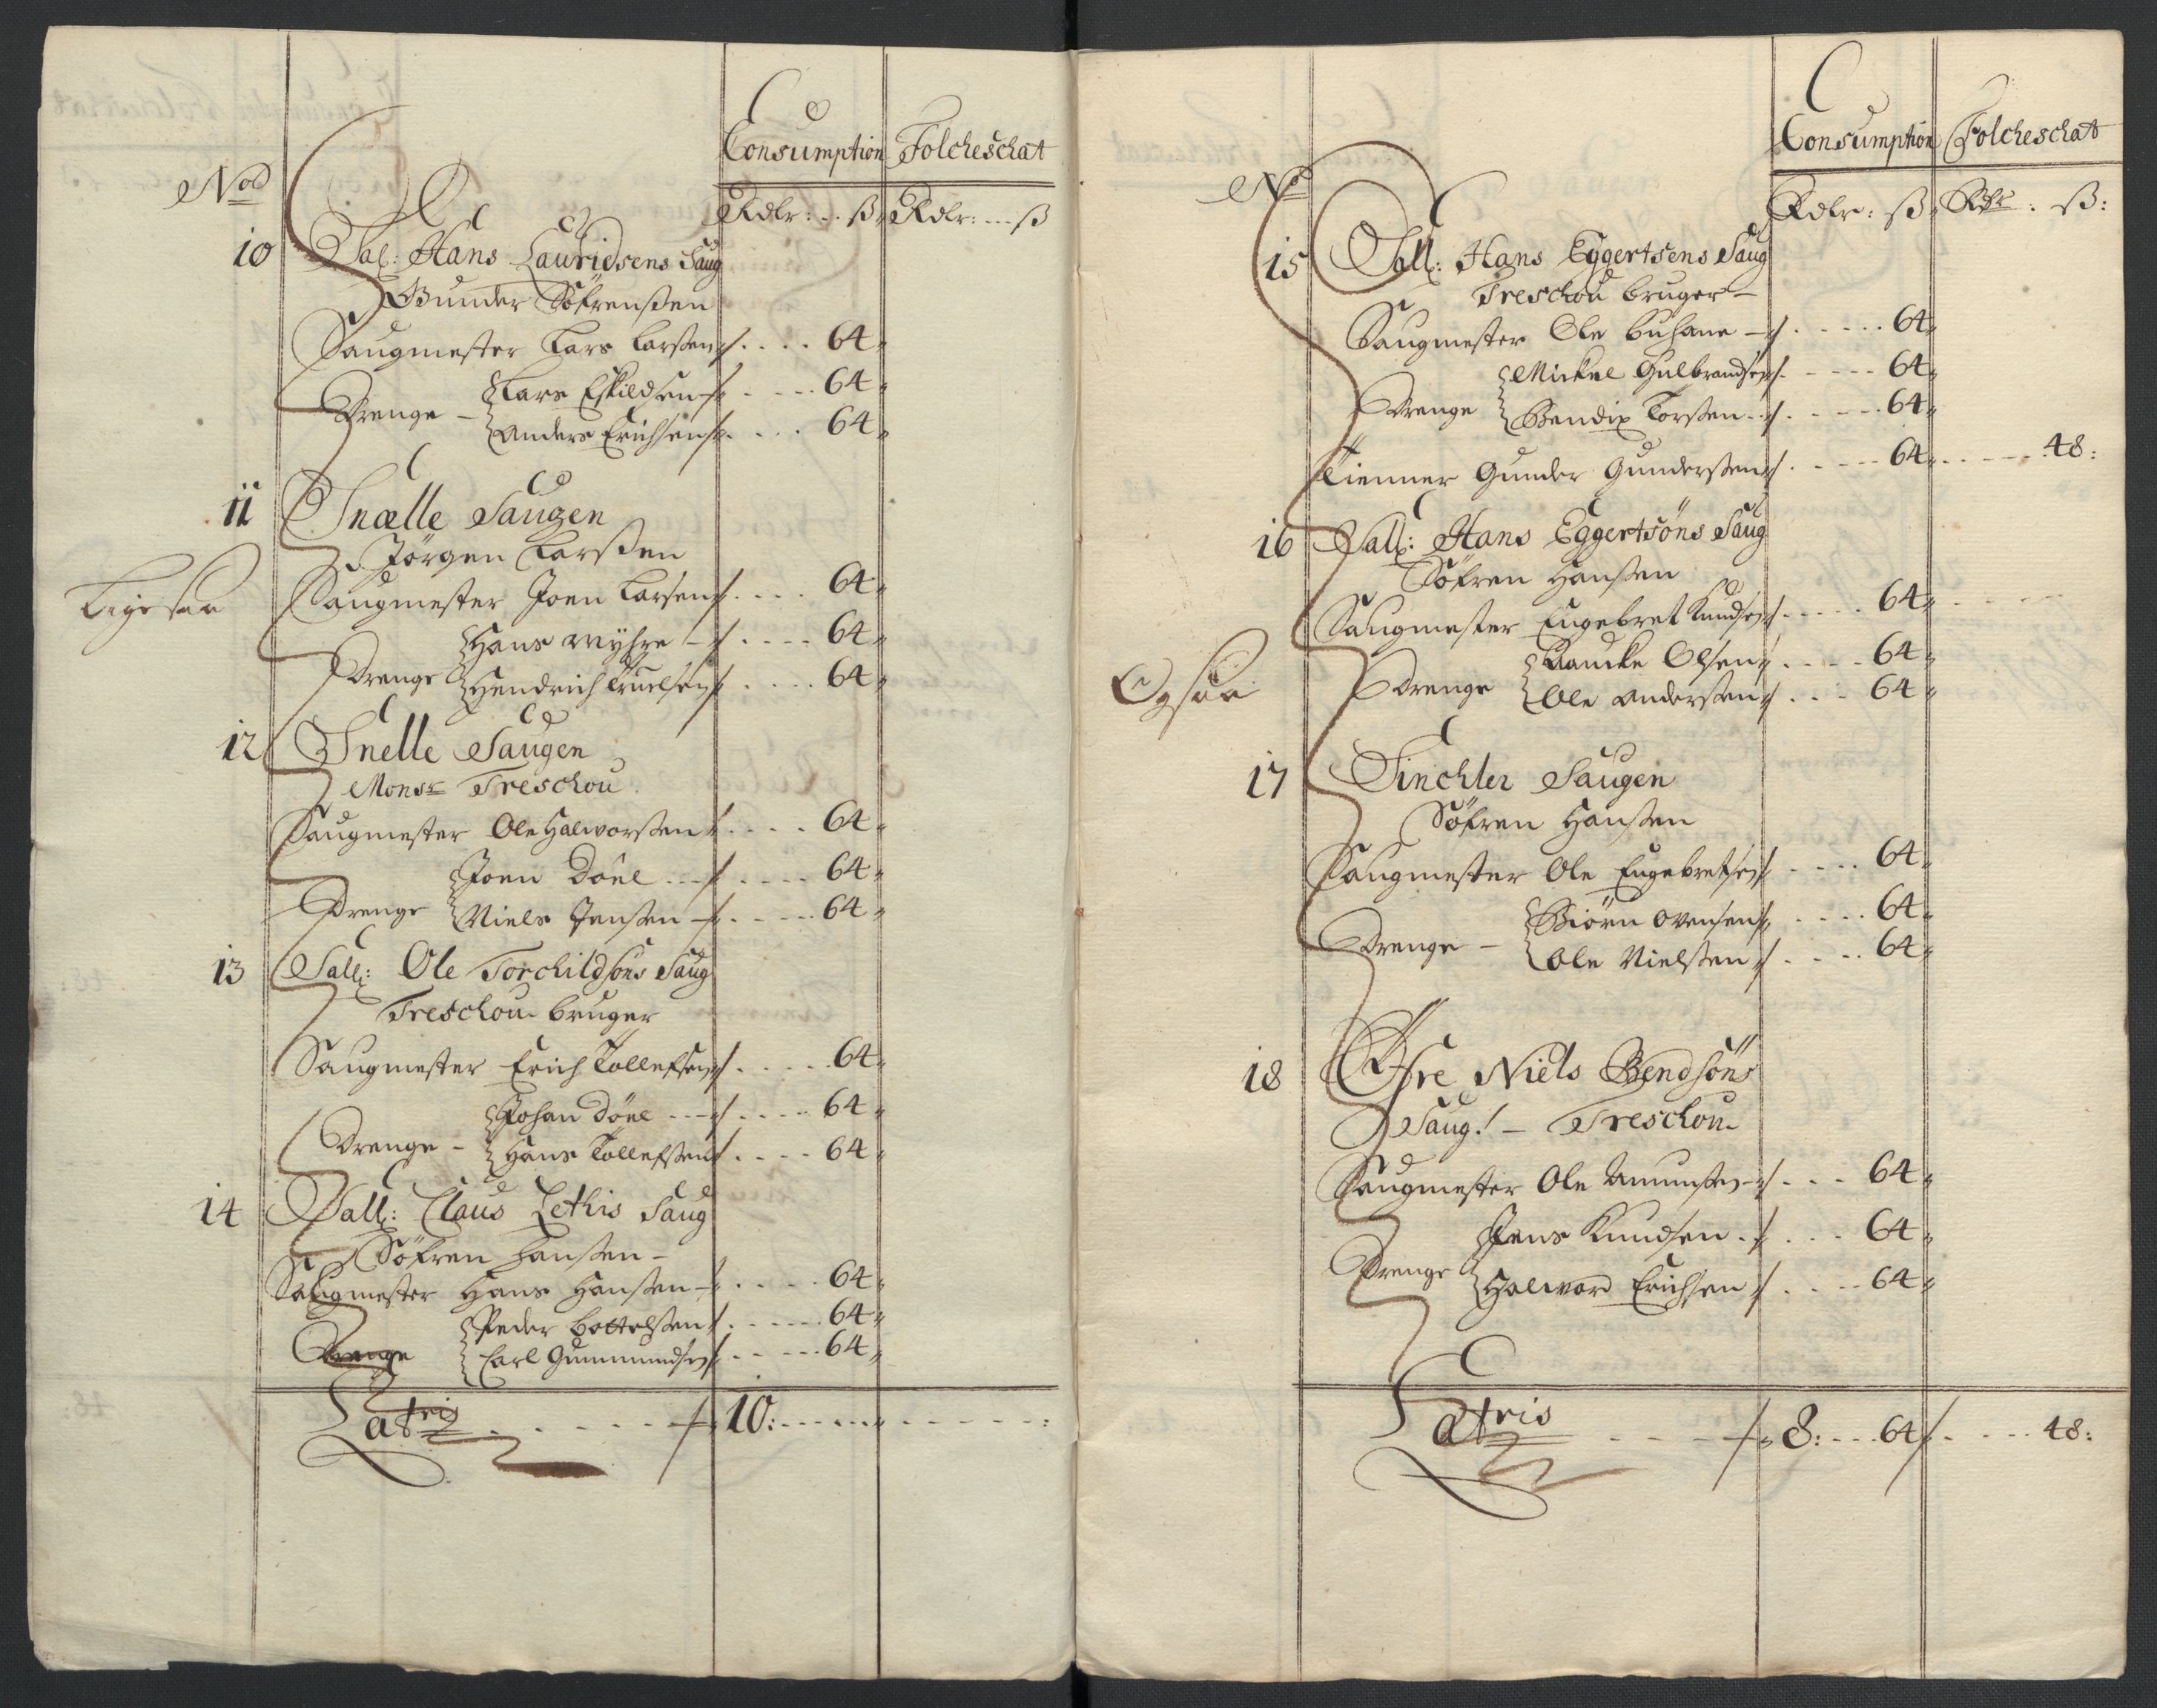 Consumption Folcheschat
No
Rdlr: ß Rdlr: ß
10 Sal: Hans Lauridsens Saug
Gunder Söfrenßen
Saugmester Lars Larßen 64
Drenge Lars Eskildsen 64
Anders Erichsen 64
11 Snælle Saugen
Jörgen Larßen
Saugmester Joen Larsen 64
Lige saa
Hans Myhre 64
Drenge Hendrich Truelsen 64
12 Snelle Saugen
Monsr Treschou
Saugmester Ole Halworßen 64
Joen Döne 64
Drenge Niels Jenßen 64
13 Sall: Ole Torchildsöns Saug
Treschou bruger
Saugmester Erich Tollefsen 64
Johan Döne 64
Drenge Hans Tollefsen 64
14 Sall: Claus Lethis Saug
Söfren Hanßen
Saugmester Hans Hanßen 64
Peder Bottelßen 64
Drenge Carl Gummundsen 64
Latris 10:
Consumption Folcheschat
No
Rdlr: ß Rdlr: ß:
15 Sall: Hans Eggertsens Saug
Treschou bruger
Saugmester Ole Buhane 64
Mickel Gulbrandsen 64
Drenge Bendix Torßen 64
Tienner Gunder Gunderßen 64 48:
16 Sall: Hans Eggertsöns Saug
Söfren Hanßen
Saugmester Engebret Knudsen 64
Raucke Olsen 64
Ogsaa
Drenge Ole Anderßen 64
17 Finchler Saugen
Söfren Hanßen
Saugmester Ole Engebretsen 64
Biörn Ovensen 64
Drenge Ole Nielßen 64
18 Hre Niels Bendsöns
Saug! Treschou
Saugmester Ole Amunßen 64
Jens Knudsen 64
Drenge Halword Erichsen 64
Latris 8: 64 48: